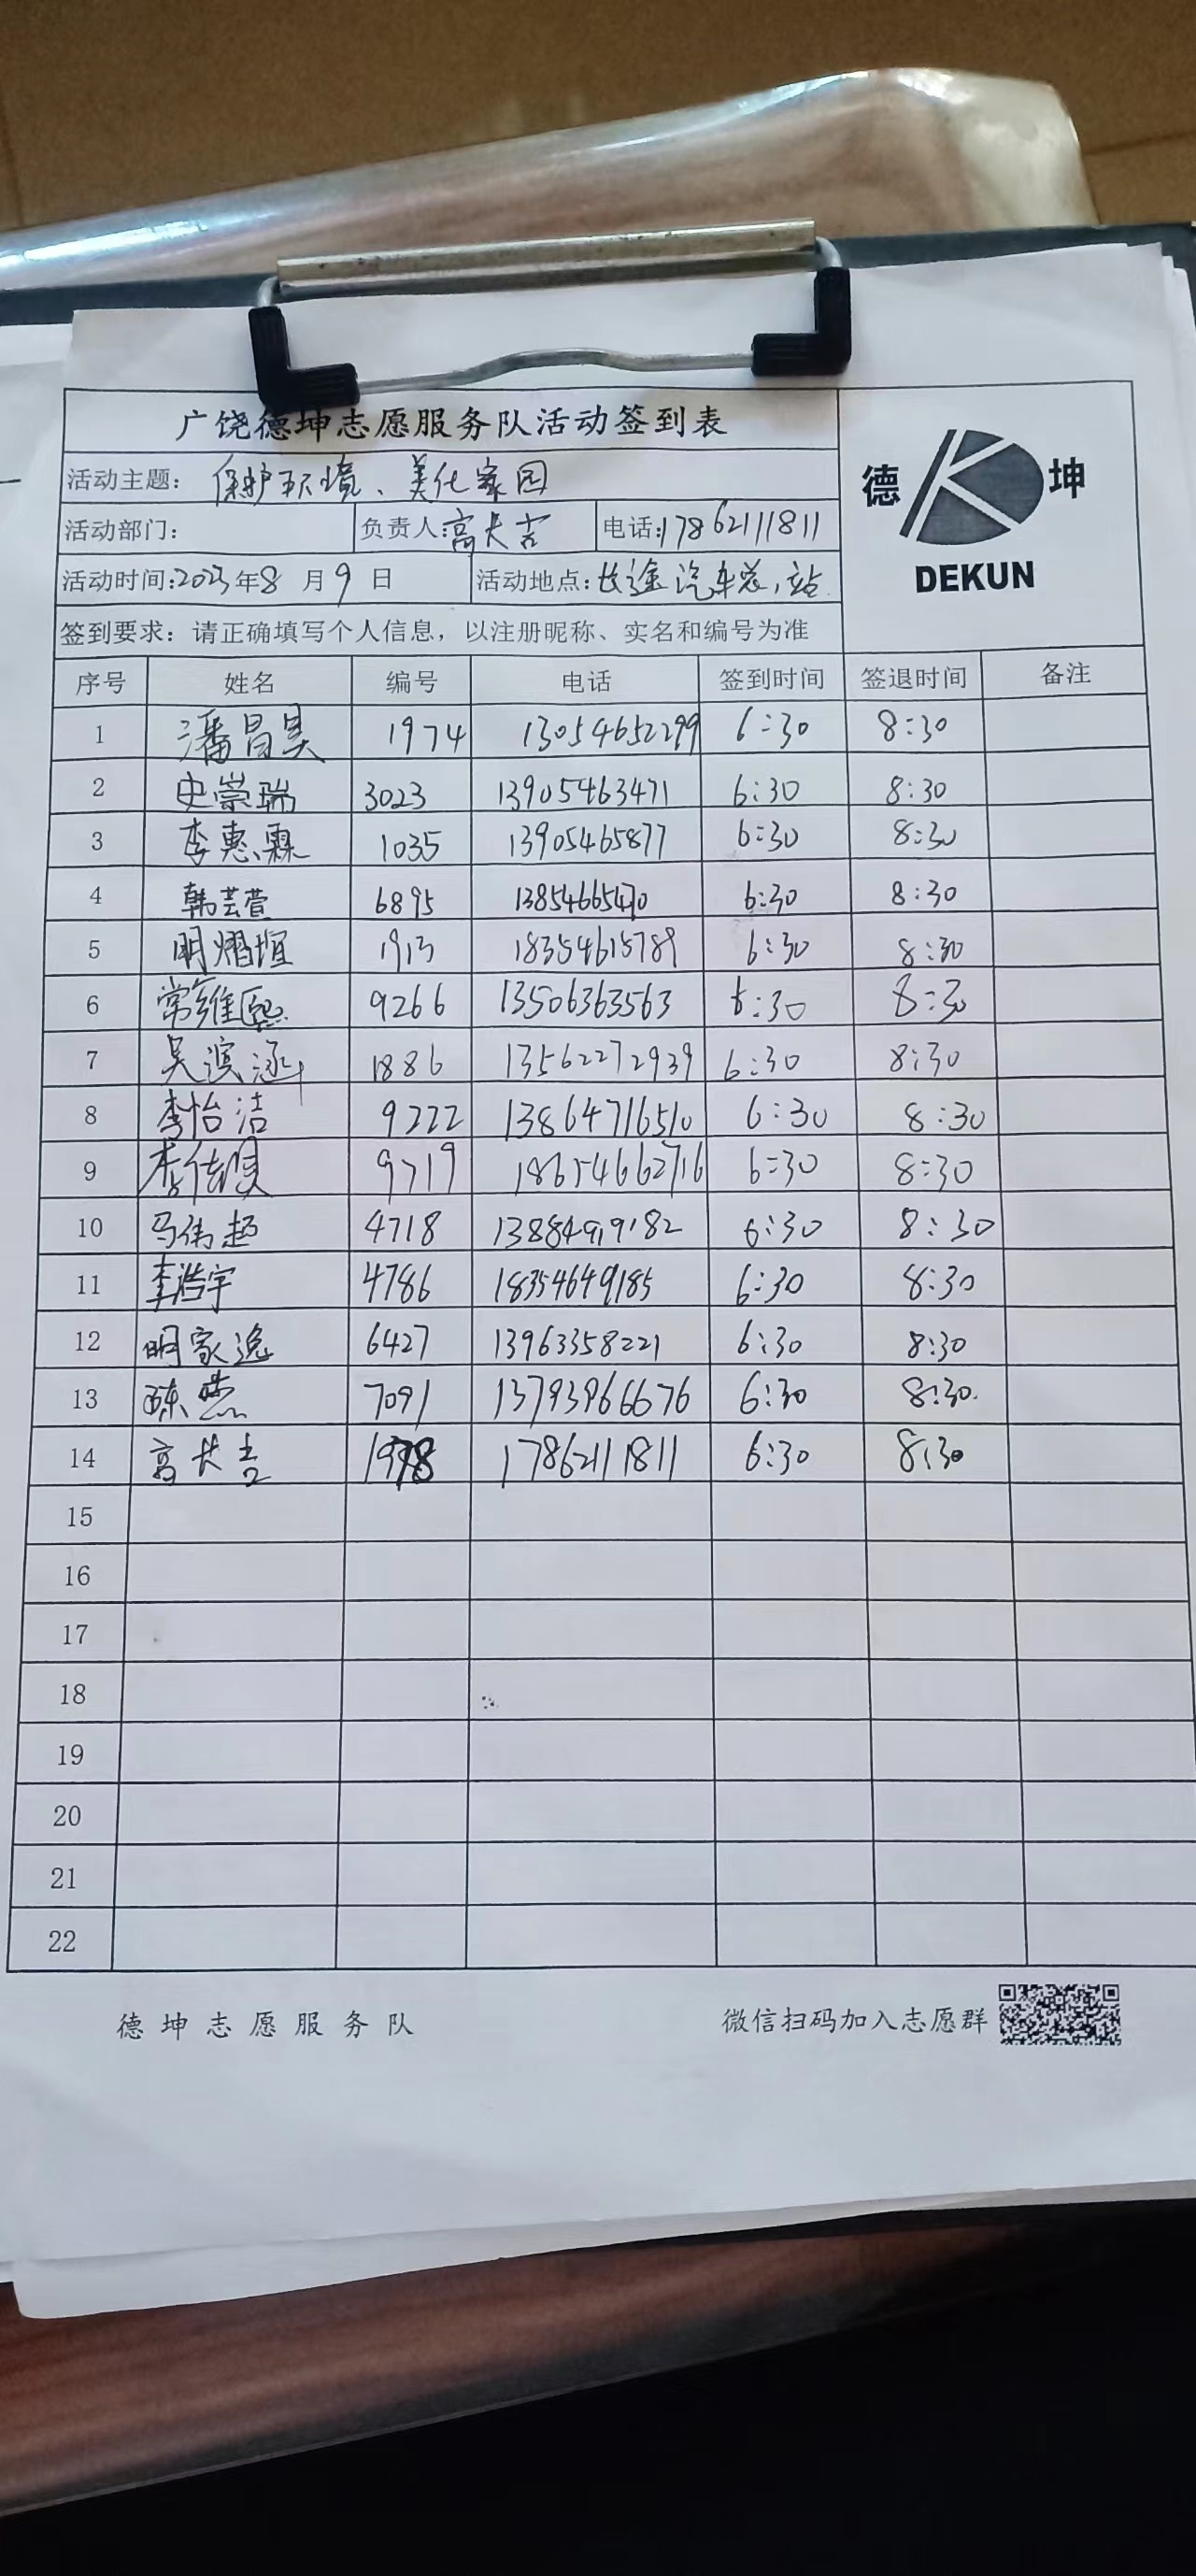 广饶德坤志愿服务队活动签到表
德 坤
DEKUN
活动主题: 保护环境、美化家园
活动部门: 负责人:高夫吉 电话:17862111811
活动时间:2023年8月9日 活动地点:长途汽车总站
签到要求:请正确填写个人信息,以注册昵称、实名和编号为准
序号 姓名 编号 电话 签到时间 签退时间 备注
1 潘昌昊 1974 13054652299 6:30 8:30
2 史崇瑞 3023 13905463471 6:30 8:30
3 李惠霖 1035 13905465877 6:30 8:30
4 韩芸萱 6895 13854665470 6:30 8:30
5 明熠瑄 1913 18354615789 6:30 8:30
6 常维熙 9266 13506363563 6:30 8:30
7 吴滨涵 1886 13562272939 6:30 8:30
8 李怡洁 9222 13864716510 6:30 8:30
9 李佳 9719 18654662716 6:30 8:30
10 马伟超 4718 13884919182 6:30 8:30
11 李浩宇 4786 18354649185 6:30 8:30
12 明家逸 6427 13963358221 6:30 8:30
13 陈 7091 13793966676 6:30 8:30
14 高夫吉 17862111811 6:30 8:30
15
16
17
18
19
20
21
22
德坤志愿服务队 微信扫码加入志愿群